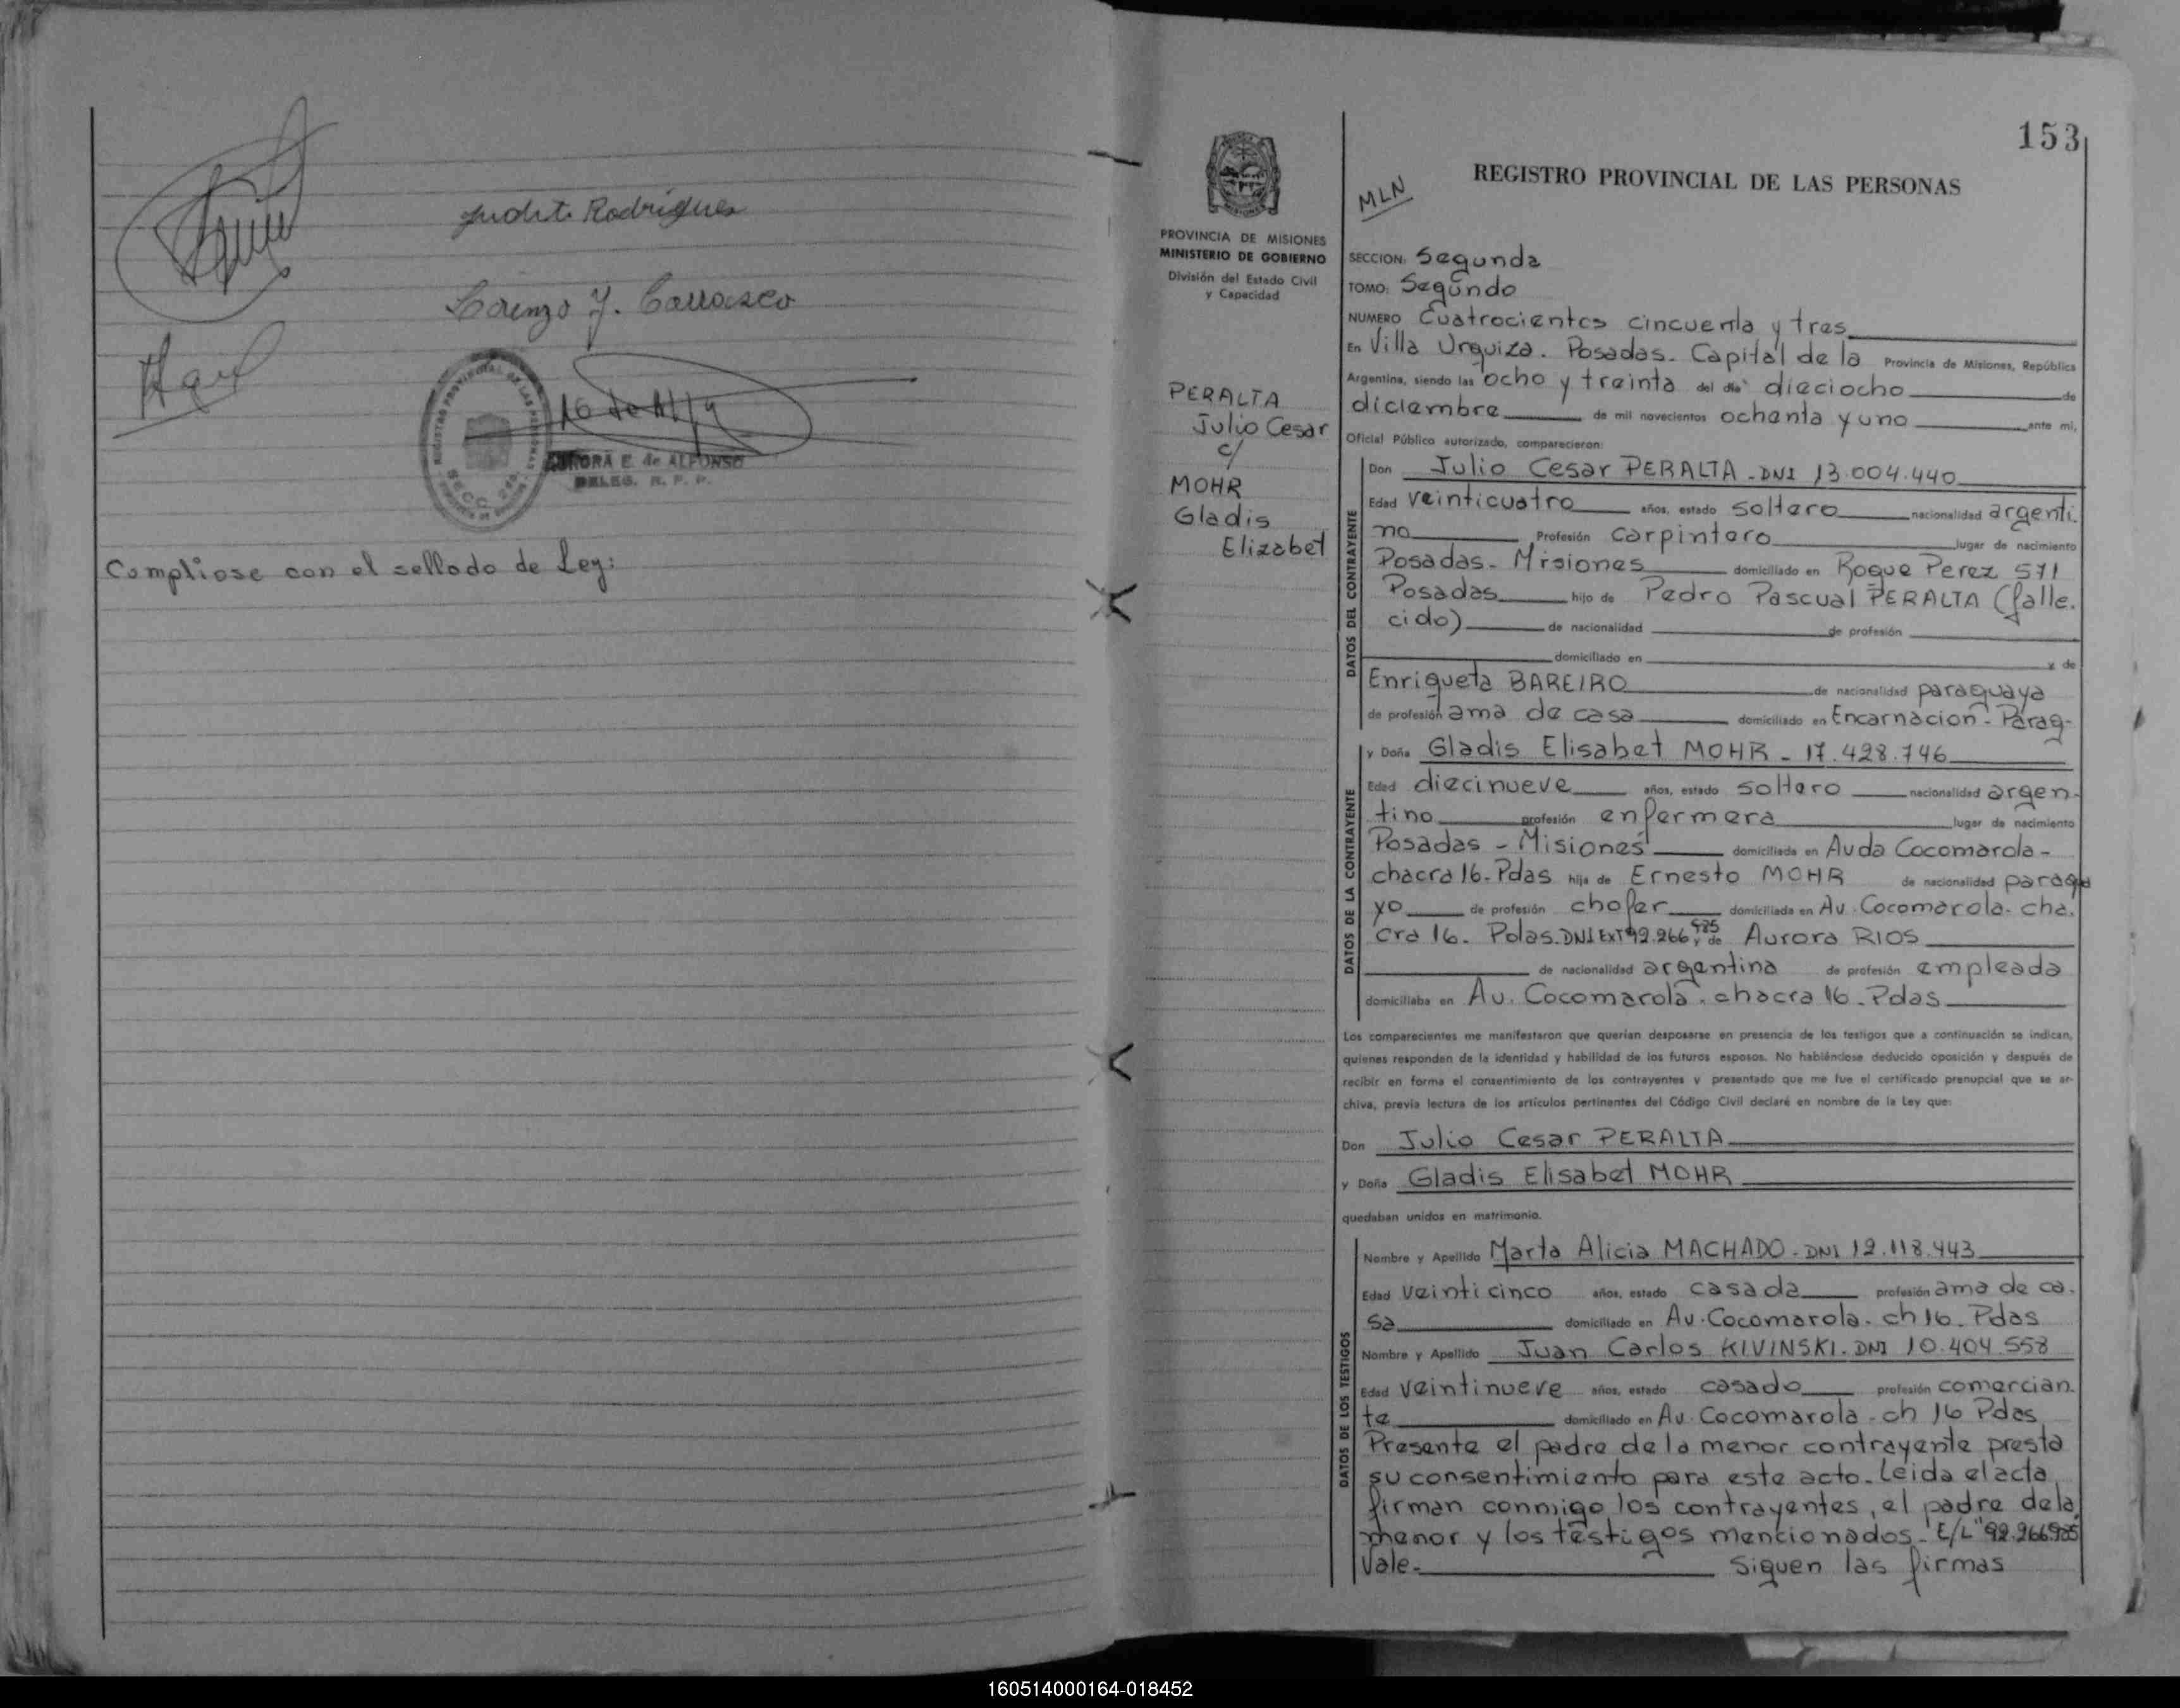 Judit Rodrigues
Lorenzo J. Carrasco
REGISTRO PROVINCIAL DE LAS PERSONAS
SECC. 2da.
AURORA E. de ALFONSO
DELEG. R. P. P.
Cumpliose con el sellado de Ley:
153
PROVINCIA DE MISIONES
MINISTERIO DE GOBIERNO
División del Estado Civil
y Capacidad
PERALTA
Julio Cesar
c/
MOHR
Gladis
Elizabet
MLN
REGISTRO PROVINCIAL DE LAS PERSONAS
SECCION: Segunda
TOMO: Segundo
NUMERO Cuatrocientos cincuenta y tres
En Villa Urquiza. Posadas. Capital de la Provincia de Misiones, República
Argentina, siendo las ocho y treinta del día dieciocho de
diciembre de mil novecientos ochenta y uno ante mi,
Oficial Público autorizado, comparecieron:
DATOS DEL CONTRAYENTE
Don Julio Cesar PERALTA - DNI 13.004.440
Edad veinticuatro años, estado soltero nacionalidad argenti.
no Profesión carpintero lugar de nacimiento
Posadas - Misiones domiciliado en Roque Perez 571
Posadas hijo de Pedro Pascual PERALTA (falle.
cido) de nacionalidad de profesión
domiciliado en y de
Enriqueta BAREIRO de nacionalidad paraguaya
de profesión ama de casa domiciliado en Encarnacion - Parag-
DATOS DE LA CONTRAYENTE
y Doña Gladis Elisabet MOHR - 17.428.746
Edad diecinueve años, estado soltero nacionalidad argen-
tino profesión enfermera lugar de nacimiento
Posadas - Misiones domiciliada en Avda Cocomarola -
chacra 16 - Pdas hija de Ernesto MOHR de nacionalidad paragua
yo de profesión chofer domiciliado en Av. Cocomarola. cha.
cra 16. Pdas. DNI EXT 92.266.985 y de Aurora RIOS
de nacionalidad argentina de profesión empleada
domiciliaba en Av. Cocomarola. chacra 16 - Pdas
Los comparecientes me manifestaron que querían desposarse en presencia de los testigos que a continuación se indican,
quienes responden de la identidad y habilidad de los futuros esposos. No habiéndose deducido oposición y después de
recibir en forma el consentimiento de los contrayentes y presentado que me fue el certificado prenupcial que se ar-
chiva, previa lectura de los artículos pertinentes del Código Civil declaré en nombre de la Ley que:
Don Julio Cesar PERALTA
y Doña Gladis Elisabet MOHR
quedaban unidos en matrimonio.
DATOS DE LOS TESTIGOS
Nombre y Apellido Marta Alicia MACHADO - DNI 12.118.443
Edad veinticinco años, estado casada profesión ama de ca.
sa domiciliado en Av. Cocomarola - ch 16. Pdas
Nombre y Apellido Juan Carlos KIVINSKI. DNI 10.404.558
Edad veintinueve años, estado casado profesión comercian.
te domiciliado en Av. Cocomarola - ch 16 Pdas
Presente el padre de la menor contrayente presta
su consentimiento para este acto. Leida el acta
firman conmigo los contrayentes, el padre de la
menor y los testigos mencionados. E/L "92.266.985"
Vale. Siguen las firmas
160514000164-018452